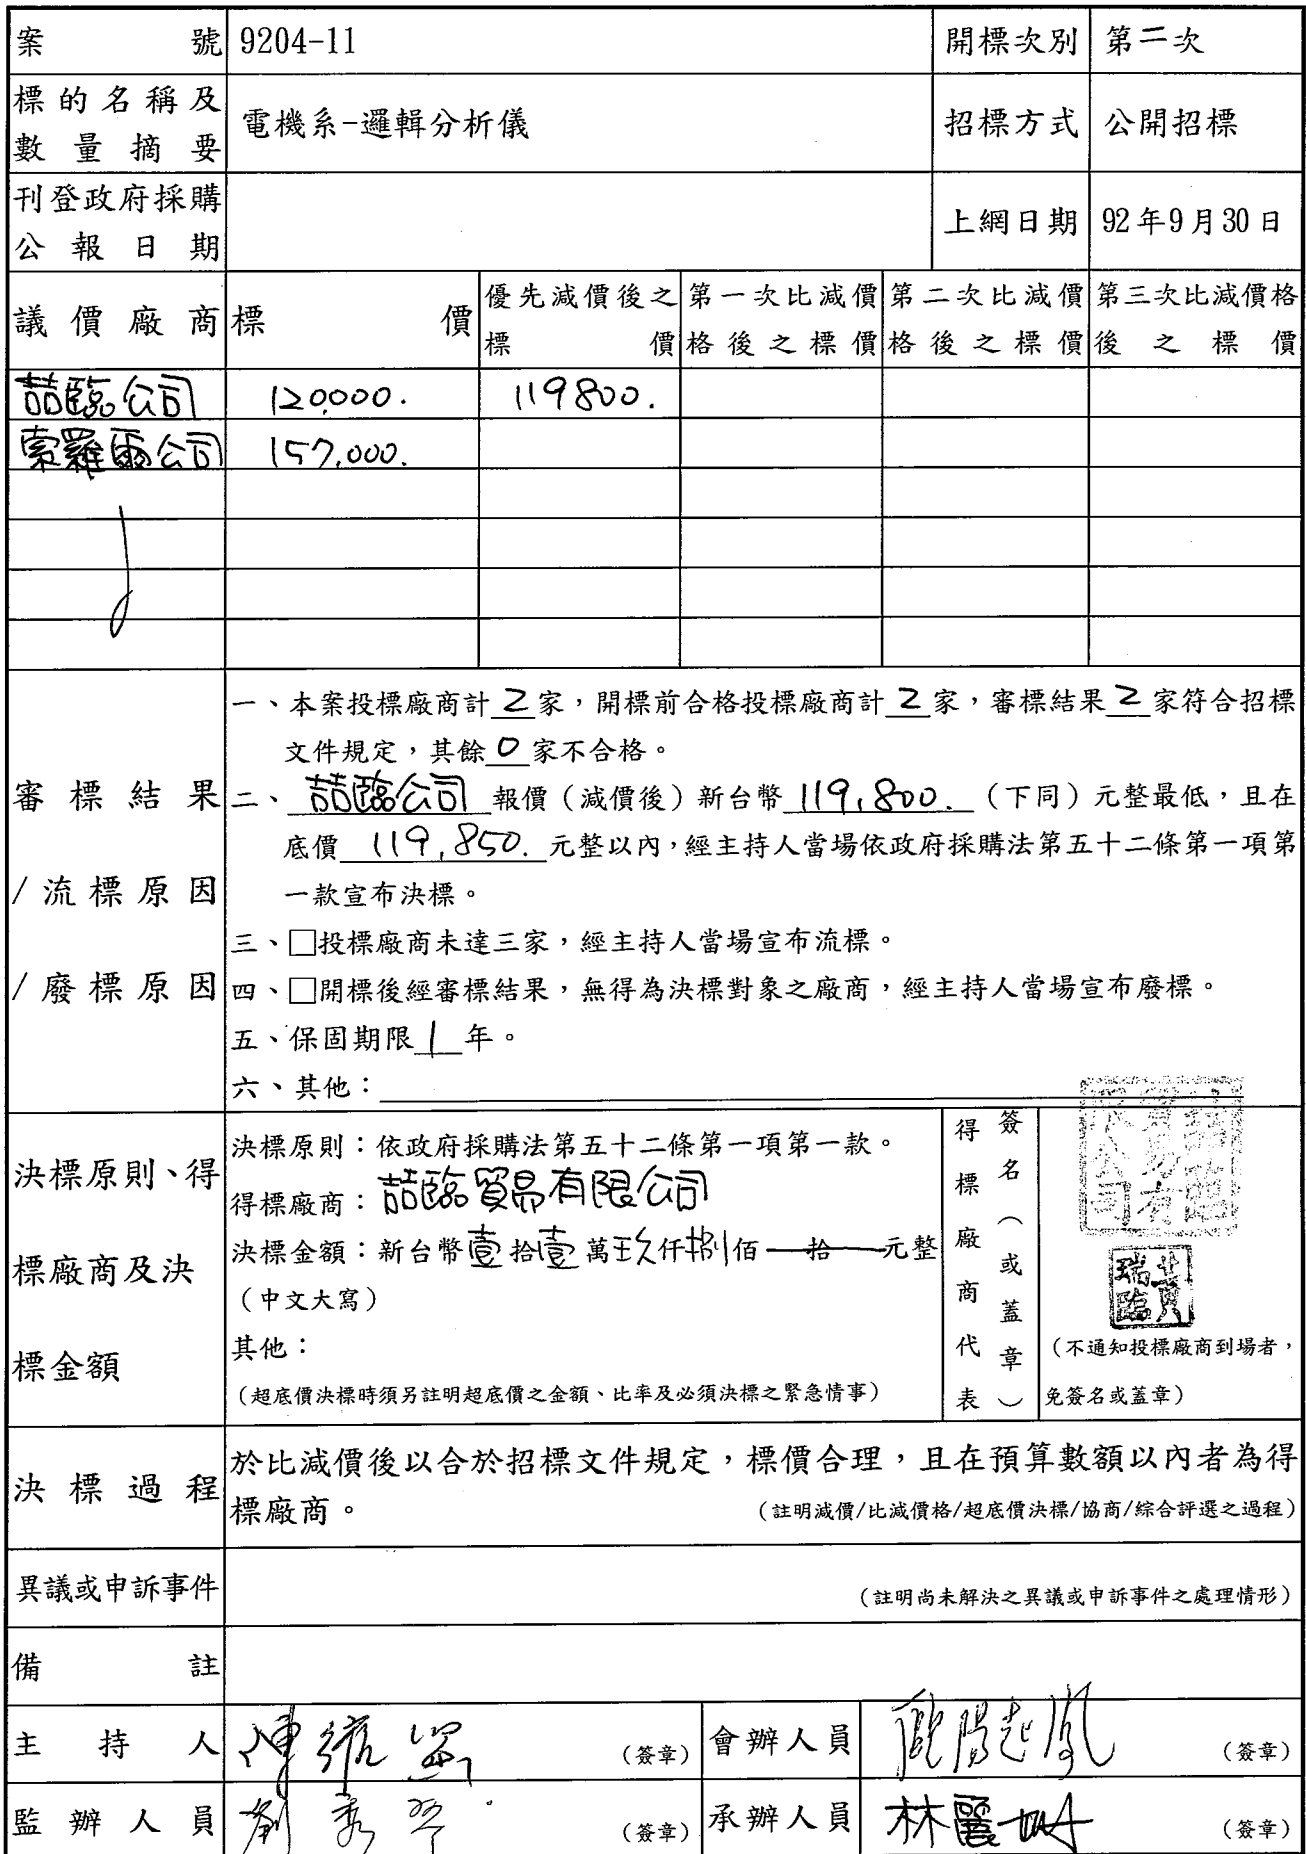 案號 9204-11 開標次別 第二次
標的名稱及數量摘要 電機系-邏輯分析儀 招標方式 公開招標
刊登政府採購公報日期 上網日期 92年9月30日
議價廠商 標價 優先減價後之標價 第一次比減價格後之標價 第二次比減價格後之標價 第三次比減價格後之標價
喆臨公司 120,000. 119800.
索羅爾公司 157,000.
審標結果
/流標原因
/廢標原因
一、本案投標廠商計 2 家，開標前合格投標廠商計 2 家，審標結果 2 家符合招標
文件規定，其餘 0 家不合格。
二、喆臨公司 報價（減價後）新台幣 119,800. （下同）元整最低，且在
底價 119,850. 元整以內，經主持人當場依政府採購法第五十二條第一項第
一款宣布決標。
三、□投標廠商未達三家，經主持人當場宣布流標。
四、□開標後經審標結果，無得為決標對象之廠商，經主持人當場宣布廢標。
五、保固期限 1 年。
六、其他：
決標原則、得
標廠商及決
標金額
決標原則：依政府採購法第五十二條第一項第一款。
得標廠商：喆臨貿易有限公司
決標金額：新台幣壹拾壹萬玖仟捌佰—拾—元整
（中文大寫）
其他：
（超底價決標時須另註明超底價之金額、比率及必須決標之緊急情事）
得標廠商代表
簽名（或蓋章）
喆臨貿易有限公司
黃瑞臨
（不通知投標廠商到場者，
免簽名或蓋章）
決標過程
於比減價後以合於招標文件規定，標價合理，且在預算數額以內者為得
標廠商。 （註明減價/比減價格/超底價決標/協商/綜合評選之過程）
異議或申訴事件 （註明尚未解決之異議或申訴事件之處理情形）
備註
主持人 （簽章） 會辦人員 歐陽起鳳 （簽章）
監辦人員 劉秀琴 （簽章） 承辦人員 林麗 （簽章）